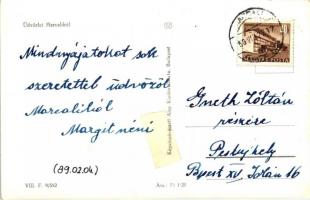 Üdvözlet Marcaliból
Mindnyájatokat sok
szeretettel üdvözöl
Marcaliból
Margit néni
(89.02.04)
VIII. F. 9/592
Ára: Ft 1·20
Képzőművészeti Alap Kiadóvállalata, Budapest
MAGYAR POSTA
Gneth Zoltán
részére
Pestujhely
Bpest XV, Zoltán 16